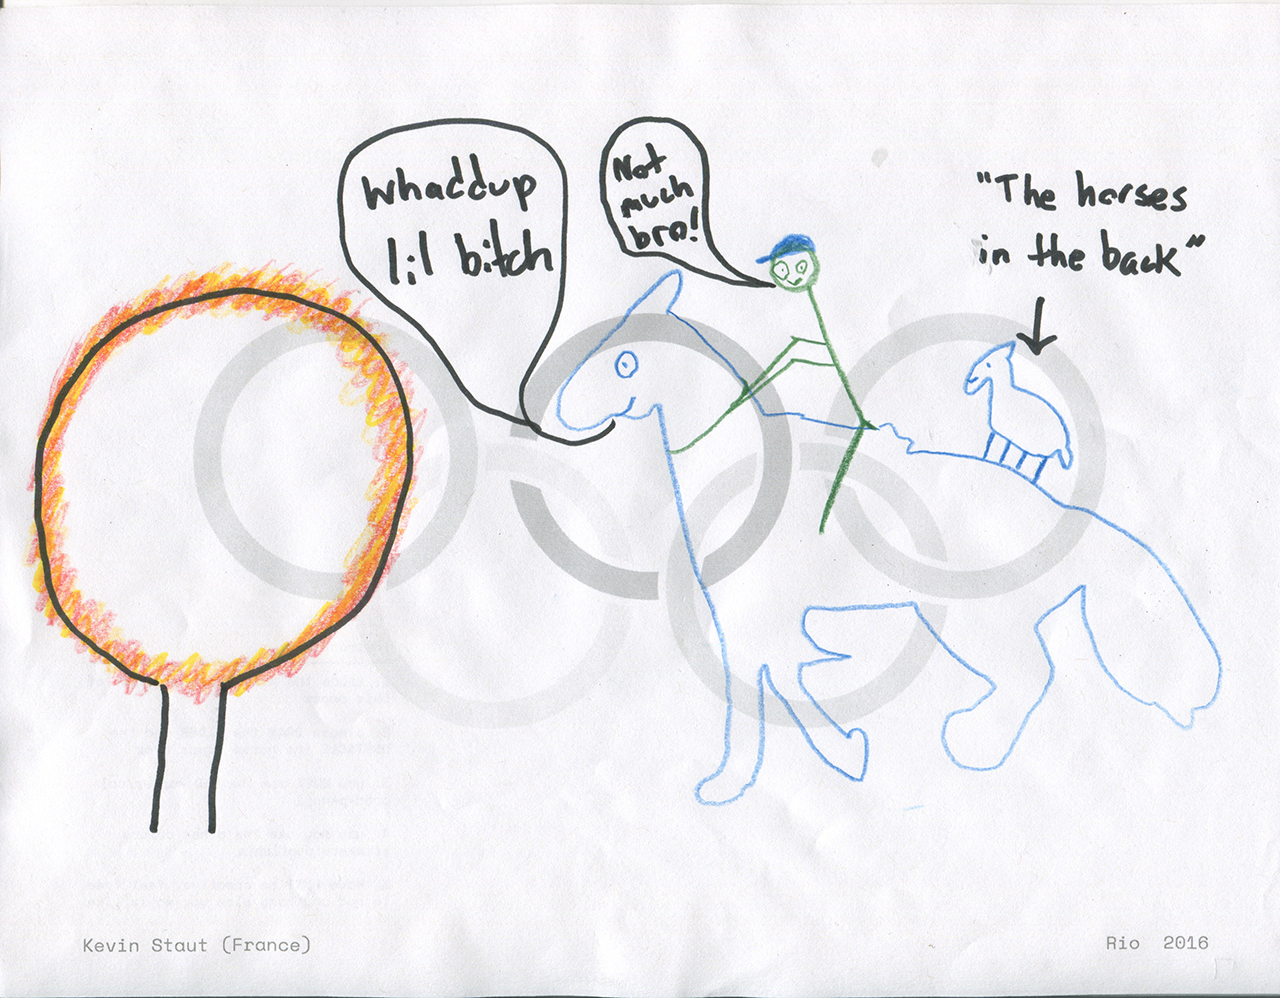 Whaddup
lil bitch
Not
much
bro!
"The horses
in the back"
Kevin Staut (France)
Rio 2016